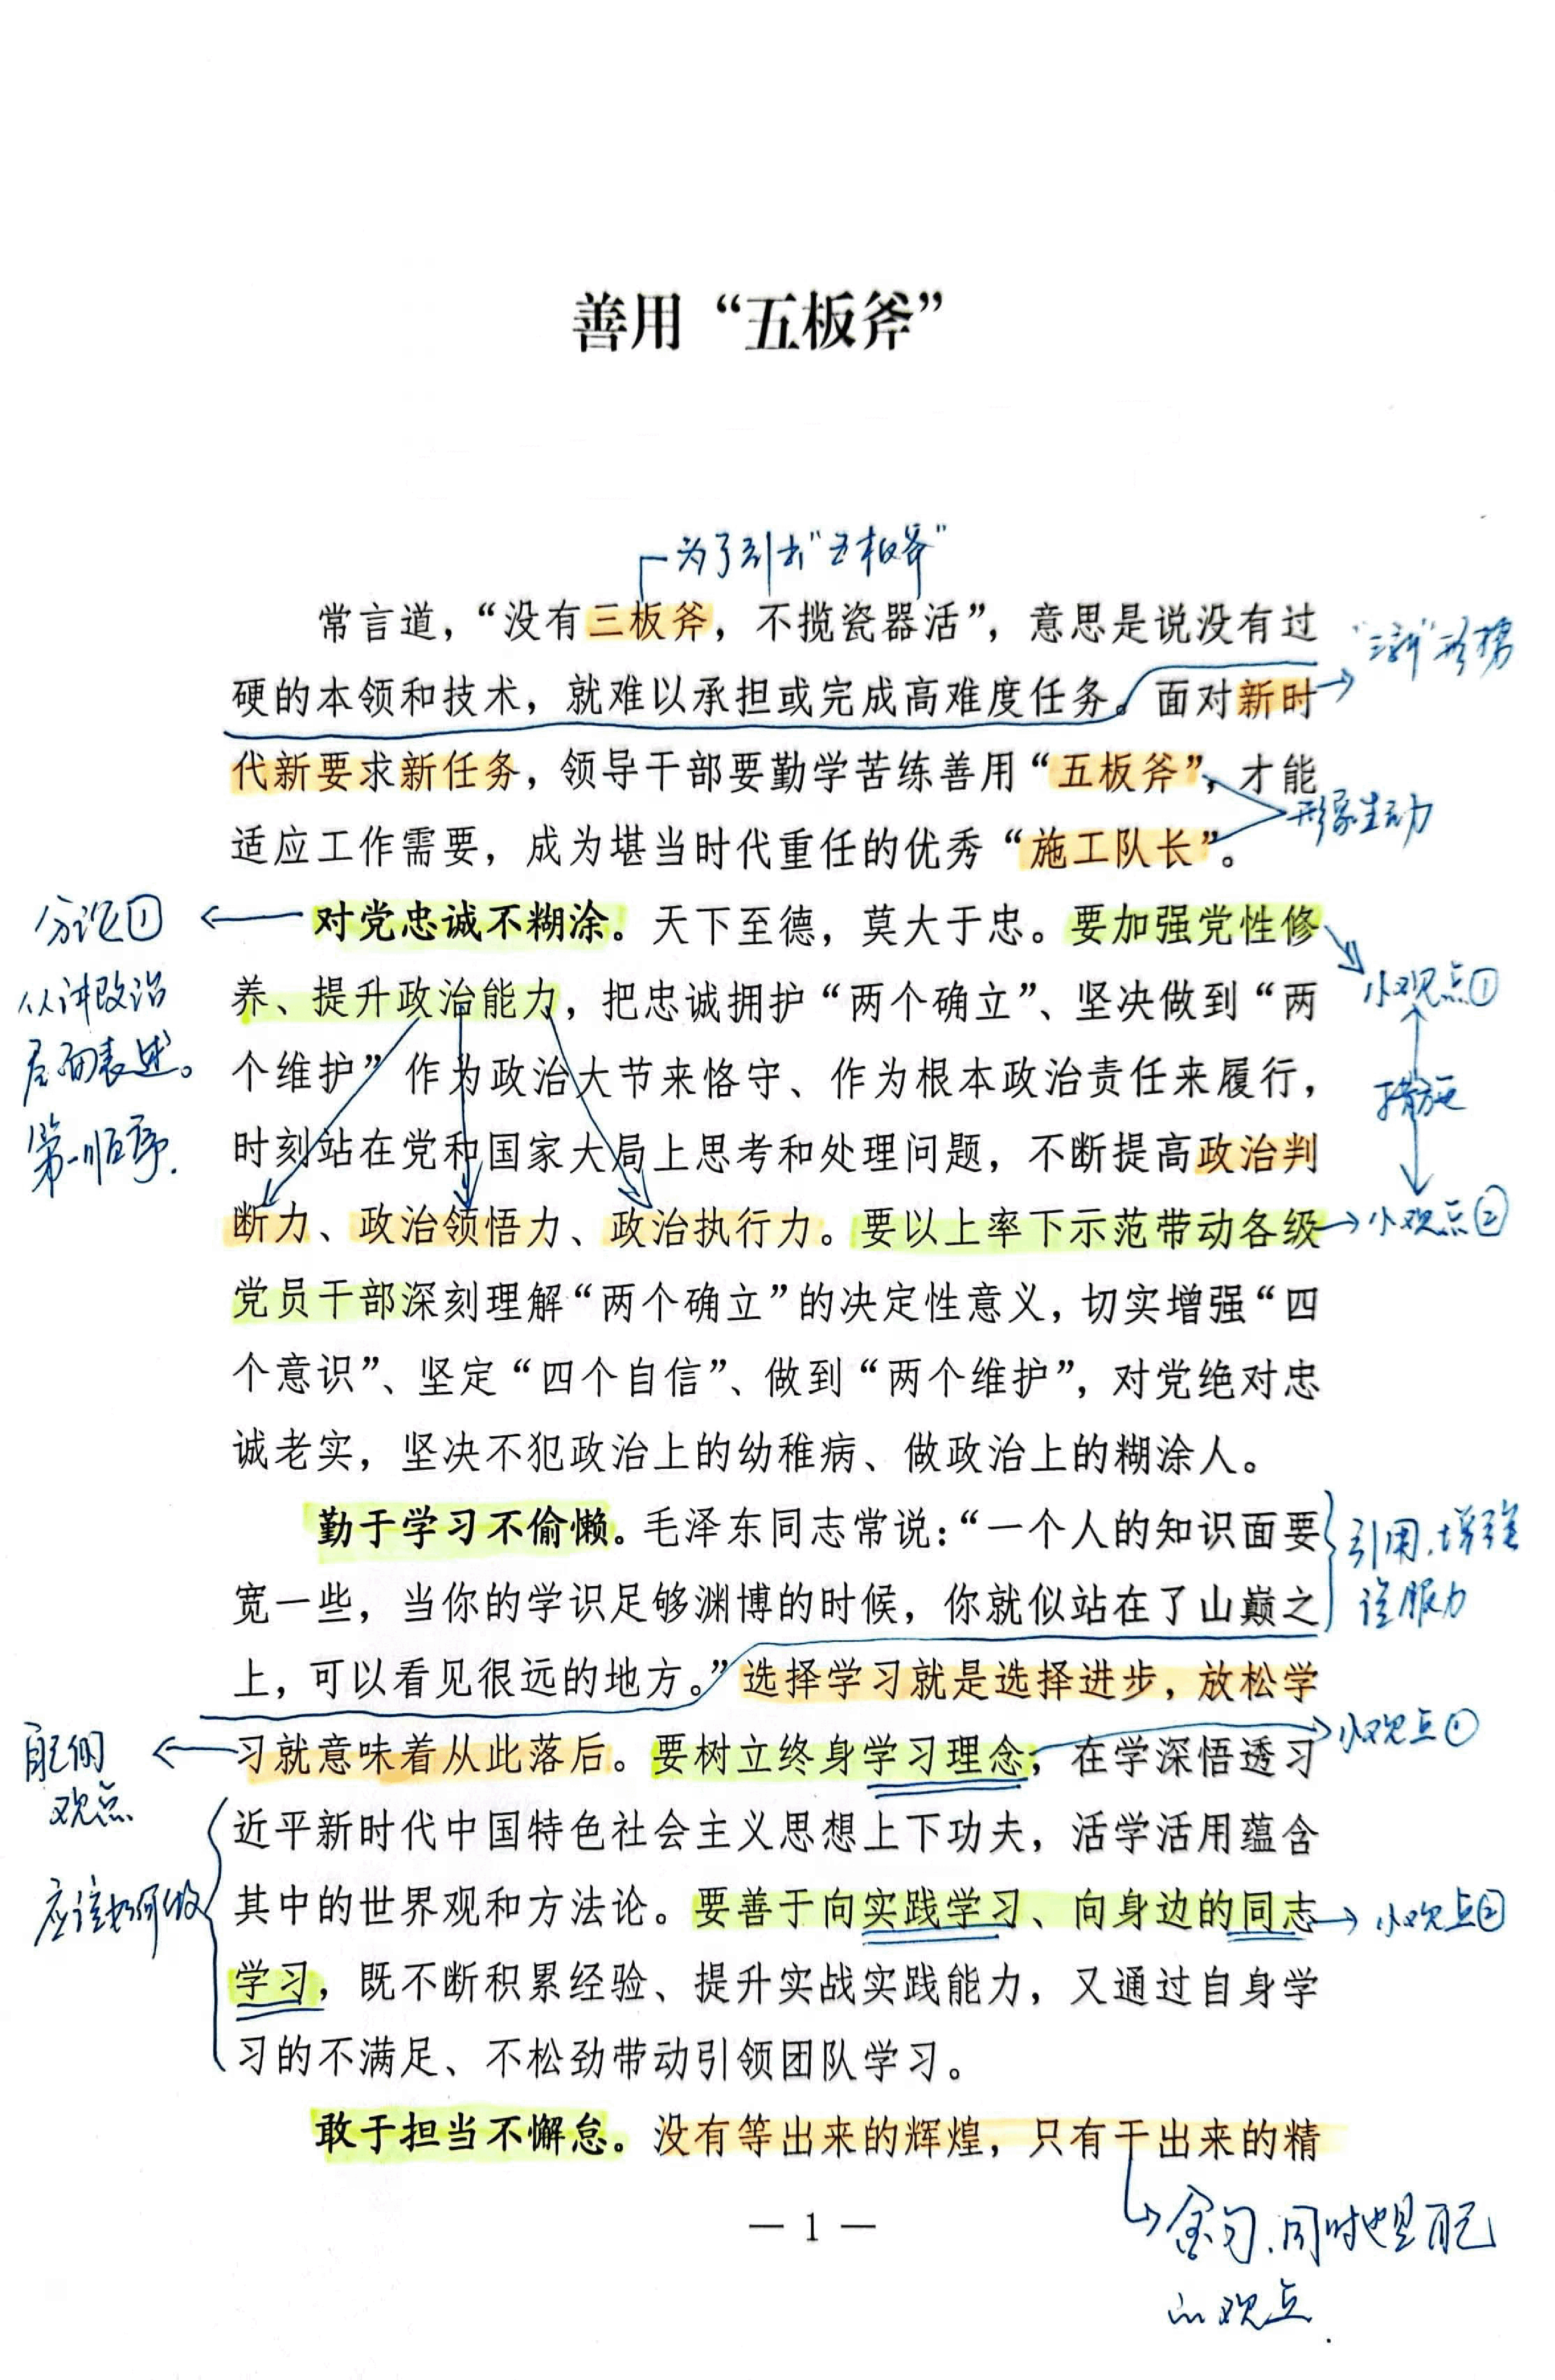 善用“五板斧”
为了引出“五板斧”
常言道，“没有三板斧，不揽瓷器活”，意思是说没有过
“三新”形势
硬的本领和技术，就难以承担或完成高难度任务。面对新时
代新要求新任务，领导干部要勤学苦练善用“五板斧”，才能
形象生动
适应工作需要，成为堪当时代重任的优秀“施工队长”。
分论①
对党忠诚不糊涂。天下至德，莫大于忠。要加强党性修
从讲政治
小观点①
养、提升政治能力，把忠诚拥护“两个确立”、坚决做到“两
层面表述。
个维护”作为政治大节来恪守、作为根本政治责任来履行，
措施
第一顺序.
时刻站在党和国家大局上思考和处理问题，不断提高政治判
断力、政治领悟力、政治执行力。要以上率下示范带动各级
小观点②
党员干部深刻理解“两个确立”的决定性意义，切实增强“四
个意识”、坚定“四个自信”、做到“两个维护”，对党绝对忠
诚老实，坚决不犯政治上的幼稚病、做政治上的糊涂人。
勤于学习不偷懒。毛泽东同志常说：“一个人的知识面要
引用.增强
宽一些，当你的学识足够渊博的时候，你就似站在了山巅之
说服力
上，可以看见很远的地方。”选择学习就是选择进步，放松学
自己的
习就意味着从此落后。要树立终身学习理念，在学深悟透习
小观点①
观点
近平新时代中国特色社会主义思想上下功夫，活学活用蕴含
应该如何做
其中的世界观和方法论。要善于向实践学习、向身边的同志
小观点②
学习，既不断积累经验、提升实战实践能力，又通过自身学
习的不满足、不松劲带动引领团队学习。
敢于担当不懈怠。没有等出来的辉煌，只有干出来的精
— 1 —
金句.同时也是自己
的观点